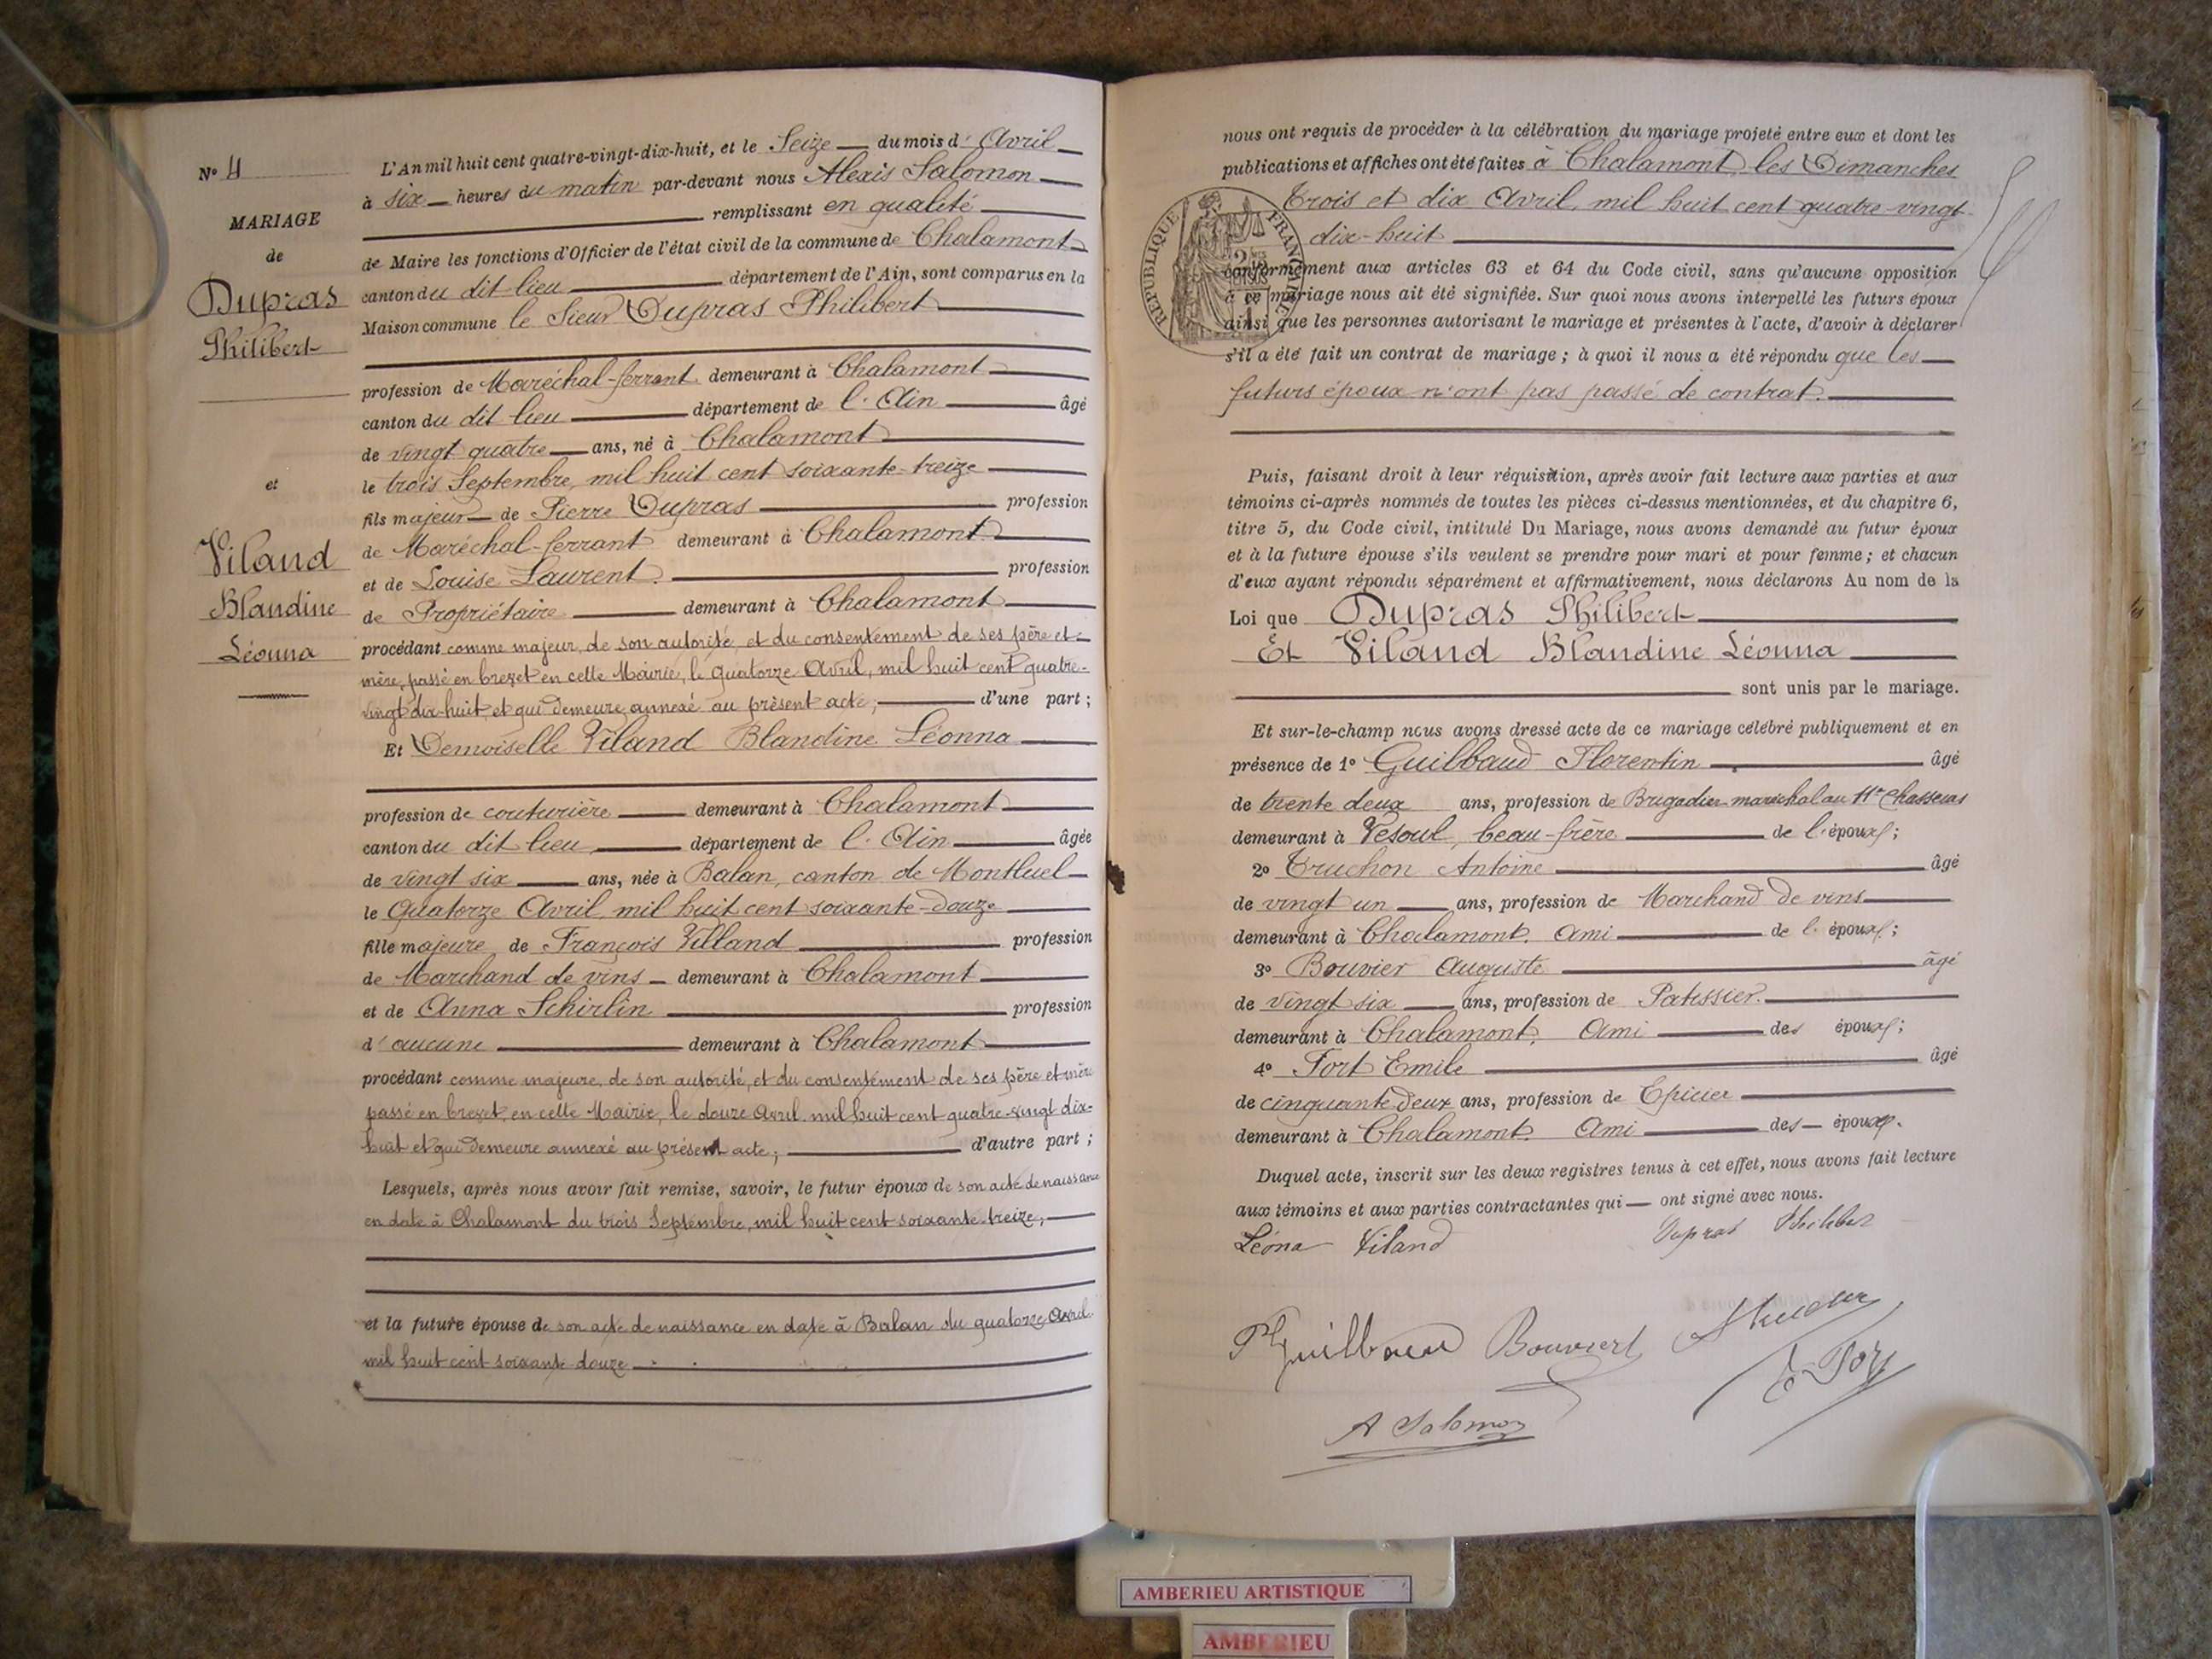 N° 4
MARIAGE
de
Dupras
Philibert
et
Viland
Blandine
Léonna
L'An mil huit cent quatre-vingt-dix-huit, et le Seize du mois d' Avril
à six heures du matin par-devant nous Alexis Salomon
remplissant en qualité
de Maire les fonctions d'Officier de l'état civil de la commune de Chalamont
canton du dit lieu département de l'Ain, sont comparus en la
Maison commune le Sieur Dupras Philibert
profession de Maréchal-ferrant demeurant à Chalamont
canton du dit lieu département de l'Ain âgé
de vingt quatre ans, né à Chalamont
le trois Septembre, mil huit cent soixante-treize
fils majeur de Pierre Dupras profession
de Maréchal-ferrant demeurant à Chalamont
et de Louise Laurent. profession
de Propriétaire demeurant à Chalamont
procédant comme majeur, de son autorité, et du consentement de ses père et
mère, passé en brevet en cette Mairie, le quatorze Avril, mil huit cent quatre-
vingt dix-huit, et qui demeure annexé au présent acte, d'une part ;
Et Demoiselle Viland Blandine Léonna
profession de couturière demeurant à Chalamont
canton du dit lieu département de l'Ain âgée
de vingt six ans, née à Balan, canton de Montluel
le Quatorze Avril mil huit cent soixante-douze
fille majeure de François Villand profession
de Marchand de vins demeurant à Chalamont
et de Anna Schirlin profession
d'aucune demeurant à Chalamont
procédant comme majeure, de son autorité, et du consentement de ses père et mère
passé en brevet, en cette Mairie, le douze Avril mil huit cent quatre-vingt dix-
huit et qui demeure annexé au présent acte ; d'autre part ;
Lesquels, après nous avoir fait remise, savoir, le futur époux de son acte de naissance
en date à Chalamont du trois Septembre, mil huit cent soixante-treize,
et la future épouse de son acte de naissance en date à Balan du quatorze Avril
mil huit cent soixante douze
nous ont requis de procéder à la célébration du mariage projeté entre eux et dont les
publications et affiches ont été faites à Chalamont, les Dimanches
Trois et dix Avril, mil huit cent quatre-vingt
dix-huit
RÉPUBLIQUE FRANÇAISE
conformément aux articles 63 et 64 du Code civil, sans qu'aucune opposition
à ce mariage nous ait été signifiée. Sur quoi nous avons interpellé les futurs époux
ainsi que les personnes autorisant le mariage et présentes à l'acte, d'avoir à déclarer
s'il a été fait un contrat de mariage ; à quoi il nous a été répondu que les
futurs époux n'ont pas passé de contrat.
Puis, faisant droit à leur réquisition, après avoir fait lecture aux parties et aux
témoins ci-après nommés de toutes les pièces ci-dessus mentionnées, et du chapitre 6,
titre 5, du Code civil, intitulé Du Mariage, nous avons demandé au futur époux
et à la future épouse s'ils veulent se prendre pour mari et pour femme ; et chacun
d'eux ayant répondu séparément et affirmativement, nous déclarons Au nom de la
Loi que Dupras Philibert
Et Viland Blandine Léonna
sont unis par le mariage.
Et sur-le-champ nous avons dressé acte de ce mariage célébré publiquement et en
présence de 1° Guilbaud Florentin âgé
de trente deux ans, profession de Brigadier maréchal au 11e Chasseurs
demeurant à Vesoul, beau-frère de l'époux ;
2° Truchon Antoine âgé
de vingt un ans, profession de Marchand de vins
demeurant à Chalamont. Ami de l'époux ;
3° Bouvier Auguste âgé
de vingt six ans, profession de Patissier.
demeurant à Chalamont. Ami des époux ;
4° Fort Emile âgé
de cinquante deux ans, profession de Epicier
demeurant à Chalamont. Ami des époux.
Duquel acte, inscrit sur les deux registres tenus à cet effet, nous avons fait lecture
aux témoins et aux parties contractantes qui ont signé avec nous.
Léona Viland Dupras Philibert
Guilbaud Bouvier
E Fort
A Salomon
AMBERIEU ARTISTIQUE
AMBERIEU